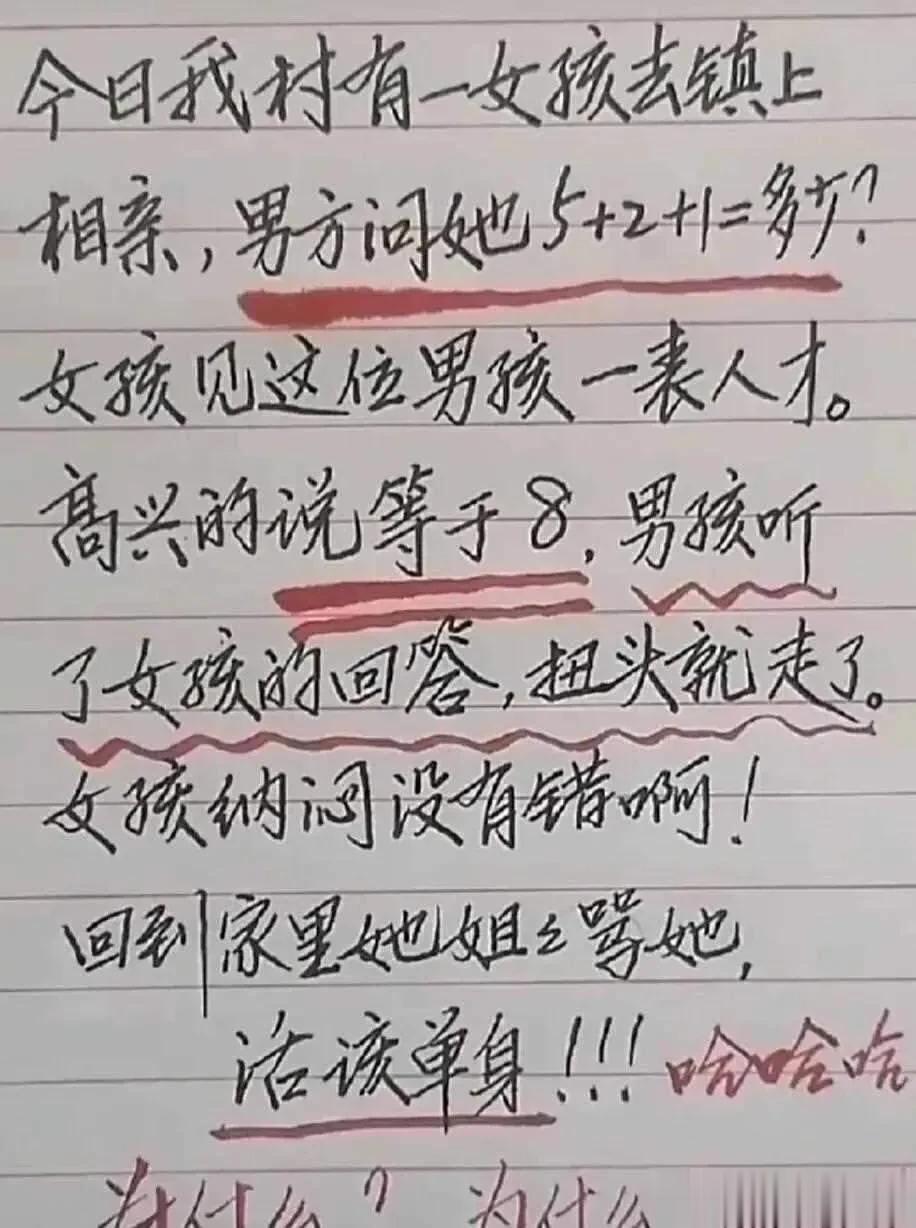 今日我村有一女孩去镇上
相亲，男方问她5+2+1=多少？
女孩见这位男孩一表人才。
高兴的说等于8，男孩听
了女孩的回答，扭头就走了。
女孩纳闷没有错啊！
回到家里她姐々骂她，
活该单身！！！哈哈哈
为什么？为什么